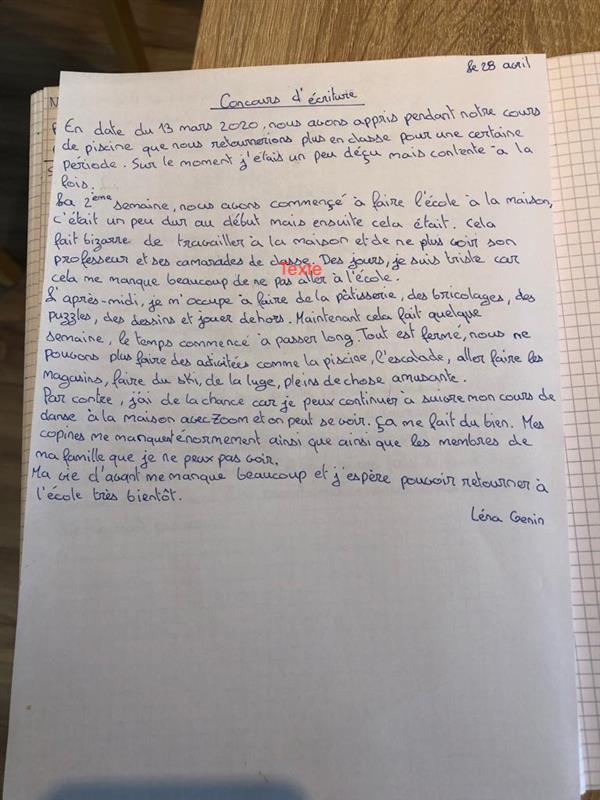 le 28 avril
Concours d'écriture
En date du 13 mars 2020, nous avons appris pendant notre cours
de piscine que nous retournerions plus en classe pour une certaine
période. Sur le moment j'étais un peu déçu mais contente à la
fois.
La 2ème semaine, nous avons commencé à faire l'école à la maison,
c'était un peu dur au début mais ensuite cela était. Cela
fait bizarre de travailler à la maison et de ne plus voir son
professeur et ses camarades de classe. Des jours, je suis triste car
Texte
cela me manque beaucoup de ne pas aller à l'école.
L'après-midi, je m'occupe à faire de la pâtisserie, des bricolages, des
puzzles, des dessins et jouer dehors. Maintenant cela fait quelque
semaine, le temps commencé à passer long. Tout est fermé, nous ne
pouvons plus faire des activitées comme la piscine, l'escalade, aller faire les
magasins, faire du ski, de la luge, pleins de chose amusante.
Par contre, j'ai de la chance car je peux continuer à suivre mon cours de
danse à la maison avec Zoom et on peut se voir. Ça me fait du bien. Mes
copines me manquent énormement ainsi que ainsi que les membres de
ma famille que je ne peux pas voir.
Ma vie d'avant me manque beaucoup et j'espère pouvoir retourner à
l'école très bientôt.
Léna Genin